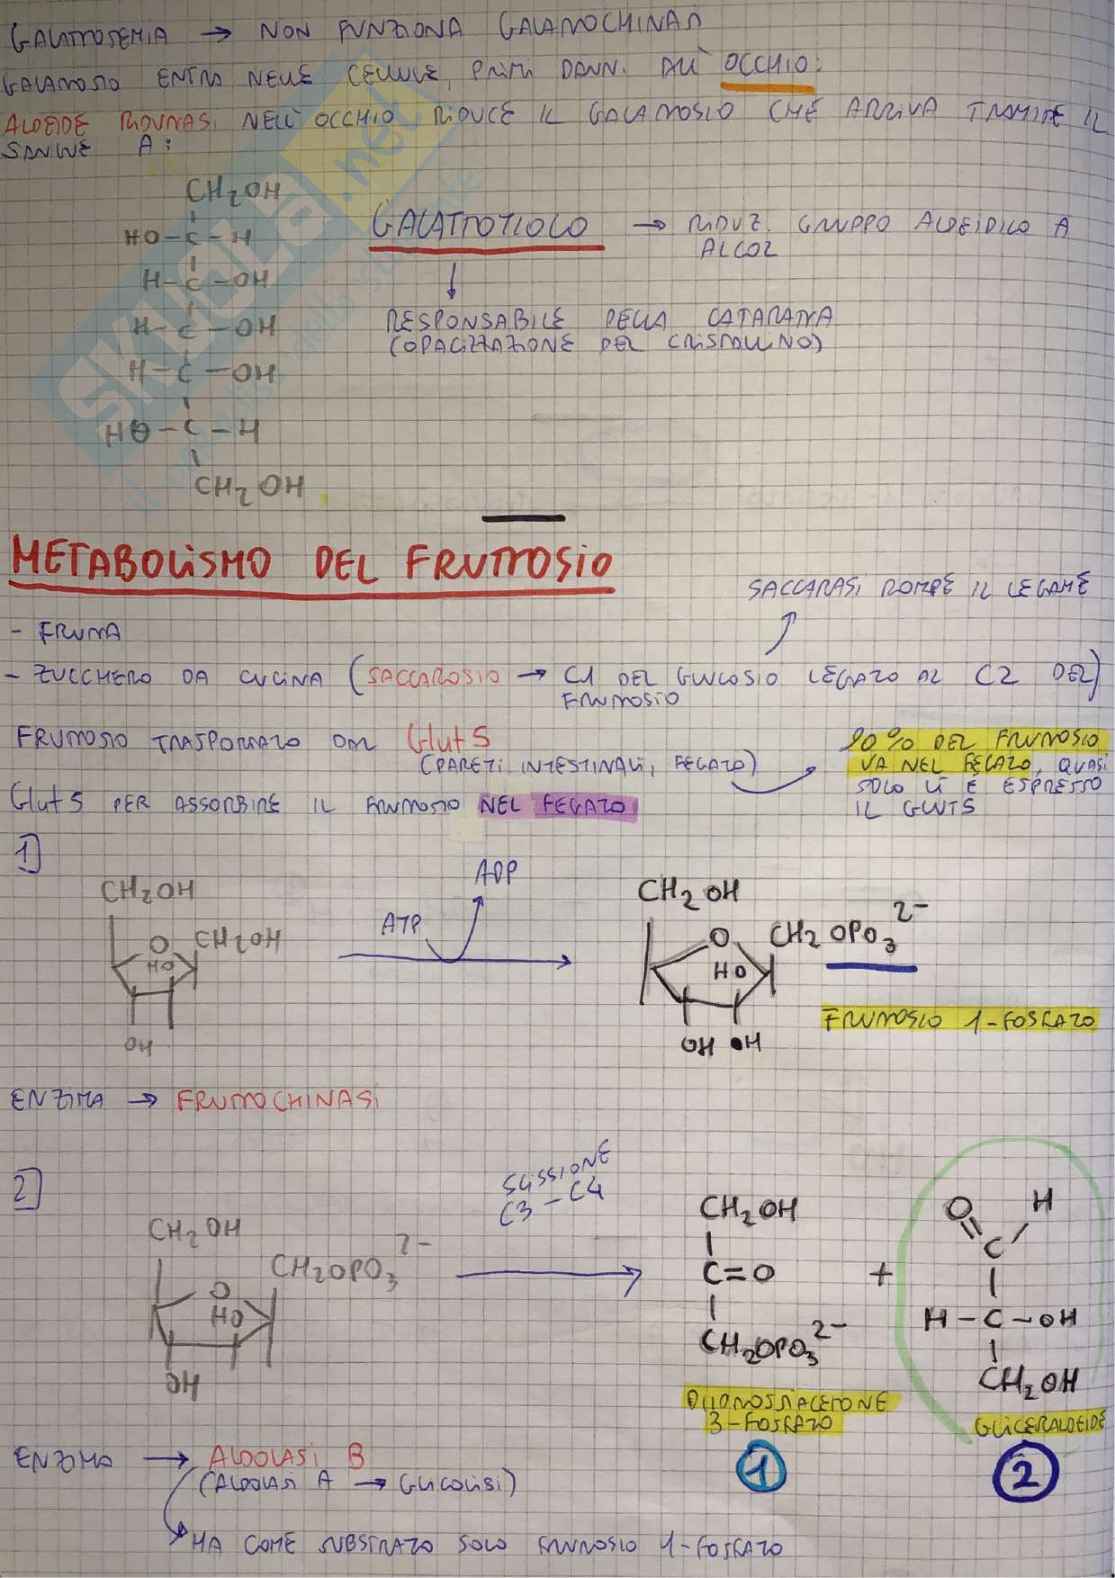 GALATTOSEMIA → NON FUNZIONA GALATTOCHINASI
GALATTOSIO ENTRA NELLE CELLULE, PRIMI DANNI ALL' OCCHIO:
ALDEIDE RIDUTTASI NELL' OCCHIO RIDUCE IL GALATTOSIO CHE ARRIVA TRAMITE IL
SANGUE A:
CH2OH
HO-C-H
H-C-OH
H-C-OH
H-C-OH
HO-C-H
CH2OH
GALATTOTIOLO → RIDUZ. GRUPPO ALDEIDICO A
ALCOL
↓
RESPONSABILE DELLA CATARATTA
(OPACIZZAZIONE DEL CRISTALLINO)
METABOLISMO DEL FRUTTOSIO
SACCARASI ROMPE IL LEGAME
- FRUTTA
- ZUCCHERO DA CUCINA (SACCAROSIO → C1 DEL GLUCOSIO LEGATO AL C2 DEL)
FRUTTOSIO
FRUTTOSIO TRASPORTATO DAL Glut5
(PARETI INTESTINALI, FEGATO)
90% DEL FRUTTOSIO
VA NEL FEGATO, QUASI
SOLO LÌ È ESPRESSO
IL GLUT5
Glut5 PER ASSORBIRE IL FRUTTOSIO NEL FEGATO
1)
CH2OH
O CH2OH
HO
OH
ATP
ADP
CH2OH
O CH2OPO3 2-
HO
OH OH
FRUTTOSIO 1-FOSFATO
ENZIMA → FRUTTOCHINASI
2)
CH2OH
O CH2OPO3 2-
HO
OH
SCISSIONE
C3-C4
CH2OH
C=O
CH2OPO3 2-
+
O H
C
H-C-OH
CH2OH
DIIDROSSIACETONE
3-FOSFATO
GLICERALDEIDE
1
2
ENZIMA → ALDOLASI B
(ALDOLASI A → GLICOLISI)
HA COME SUBSTRATO SOLO FRUTTOSIO 1-FOSFATO
SKUOLA.net